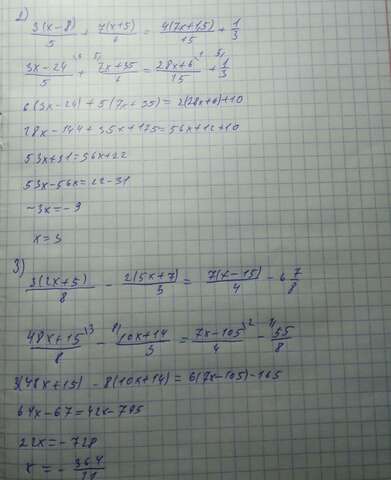 2) 3(x-8)/5 + 7(x+5)/6 = 4(7x+1,5)/15 + 1/3
3x-24/5 + 7x+35/6 = 28x+6/15 + 1/3
6(3x-24)+5(7x+35)=2(28x+6)+10
18x-144+35x+175=56x+12+10
53x+31=56x+22
53x-56x=22-31
-3x=-9
x=3
3) 3(2x+5)/8 - 2(5x+7)/3 = 7(x-15)/4 - 6 7/8
48x+15/8 - 10x+14/3 = 7x-105/4 - 55/8
3(48x+15) - 8(10x+14)=6(7x-105)-165
64x-67=42x-795
22x=-728
x = - 364/11